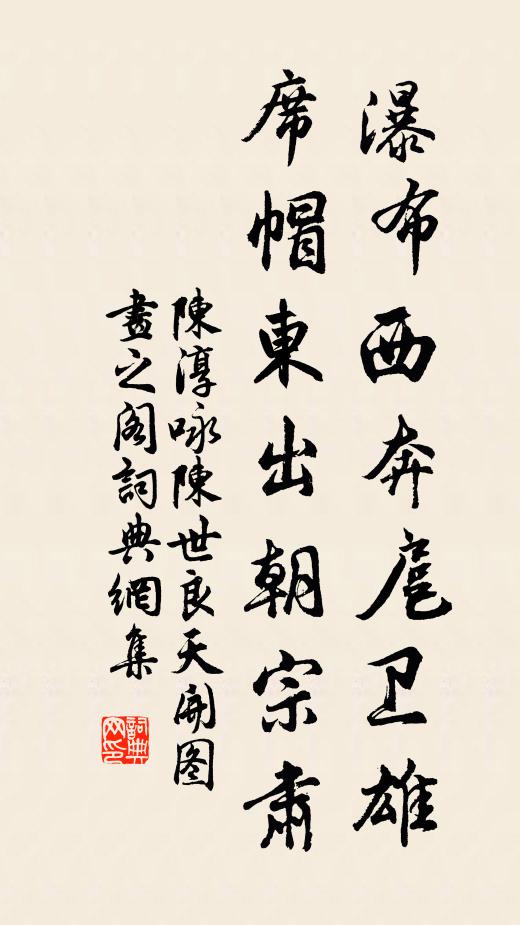 瀑布西奔扈卫雄
席帽東出朝宗肅
陳淳咏陳世良天開图
畫之阁詞典網集
詞典网印